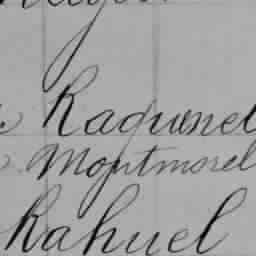 Raquenel
Montmorel
Rahuel